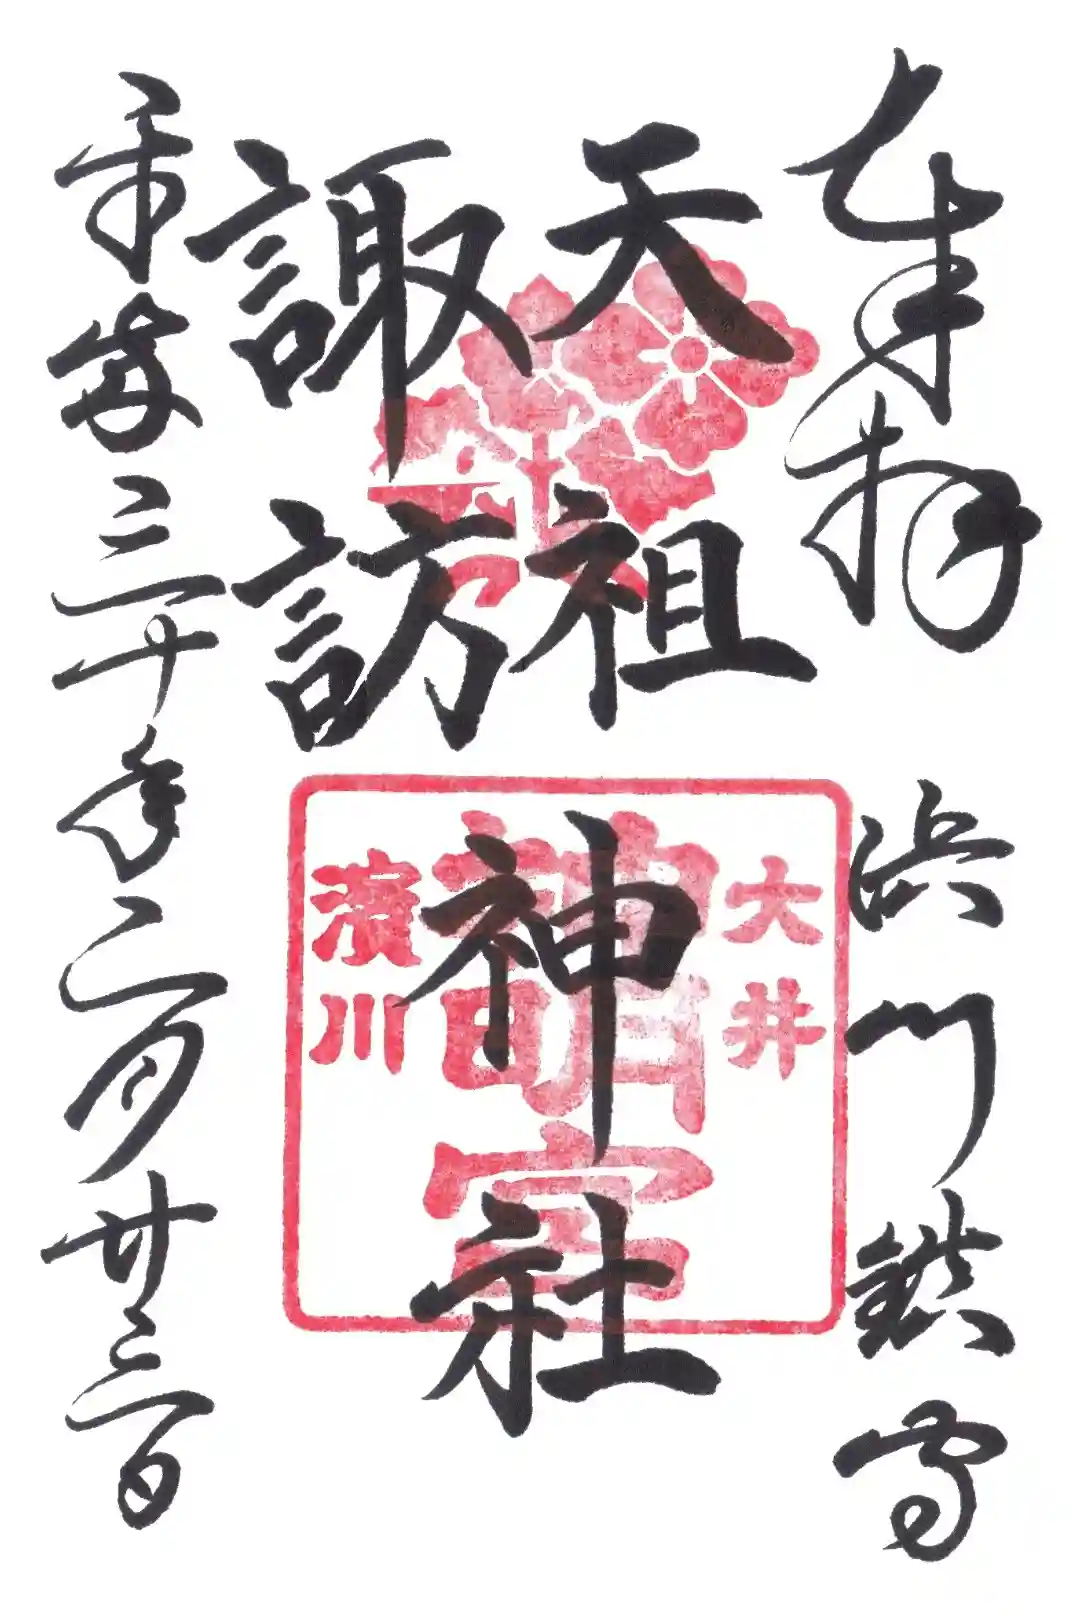 奉拝　浜川鎮守
天祖
諏訪
神社
平成三十年二月廿三日
大井
神明宮
濱川